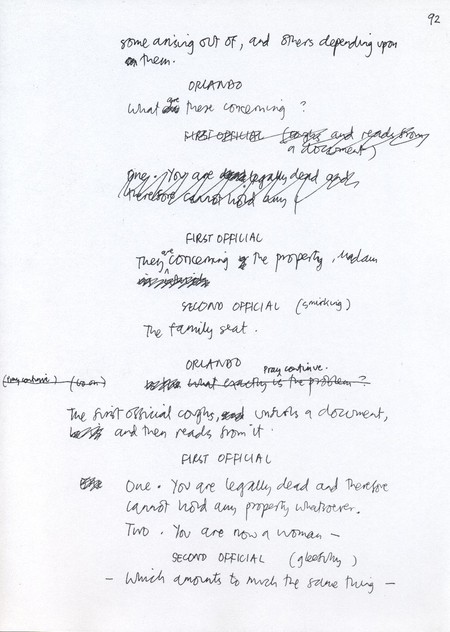 92
some arising out of, and others depending upon
them.
ORLANDO
What are these concerning ?
FIRST OFFICIAL (coughs and reads from
a document)
One. You are legally dead and
therefore cannot hold any
FIRST OFFICIAL
They are concerning the property, Madam
SECOND OFFICIAL (smirking)
The family seat.
ORLANDO
Pray continue.
(Pray continue) (to on) what exactly is the problem ?
The first official coughs, unrolls a document,
and then reads from it.
FIRST OFFICIAL
One. You are legally dead and therefore
cannot hold any property whatsoever.
Two. You are now a woman —
SECOND OFFICIAL (gleefully)
— Which amounts to much the same thing —